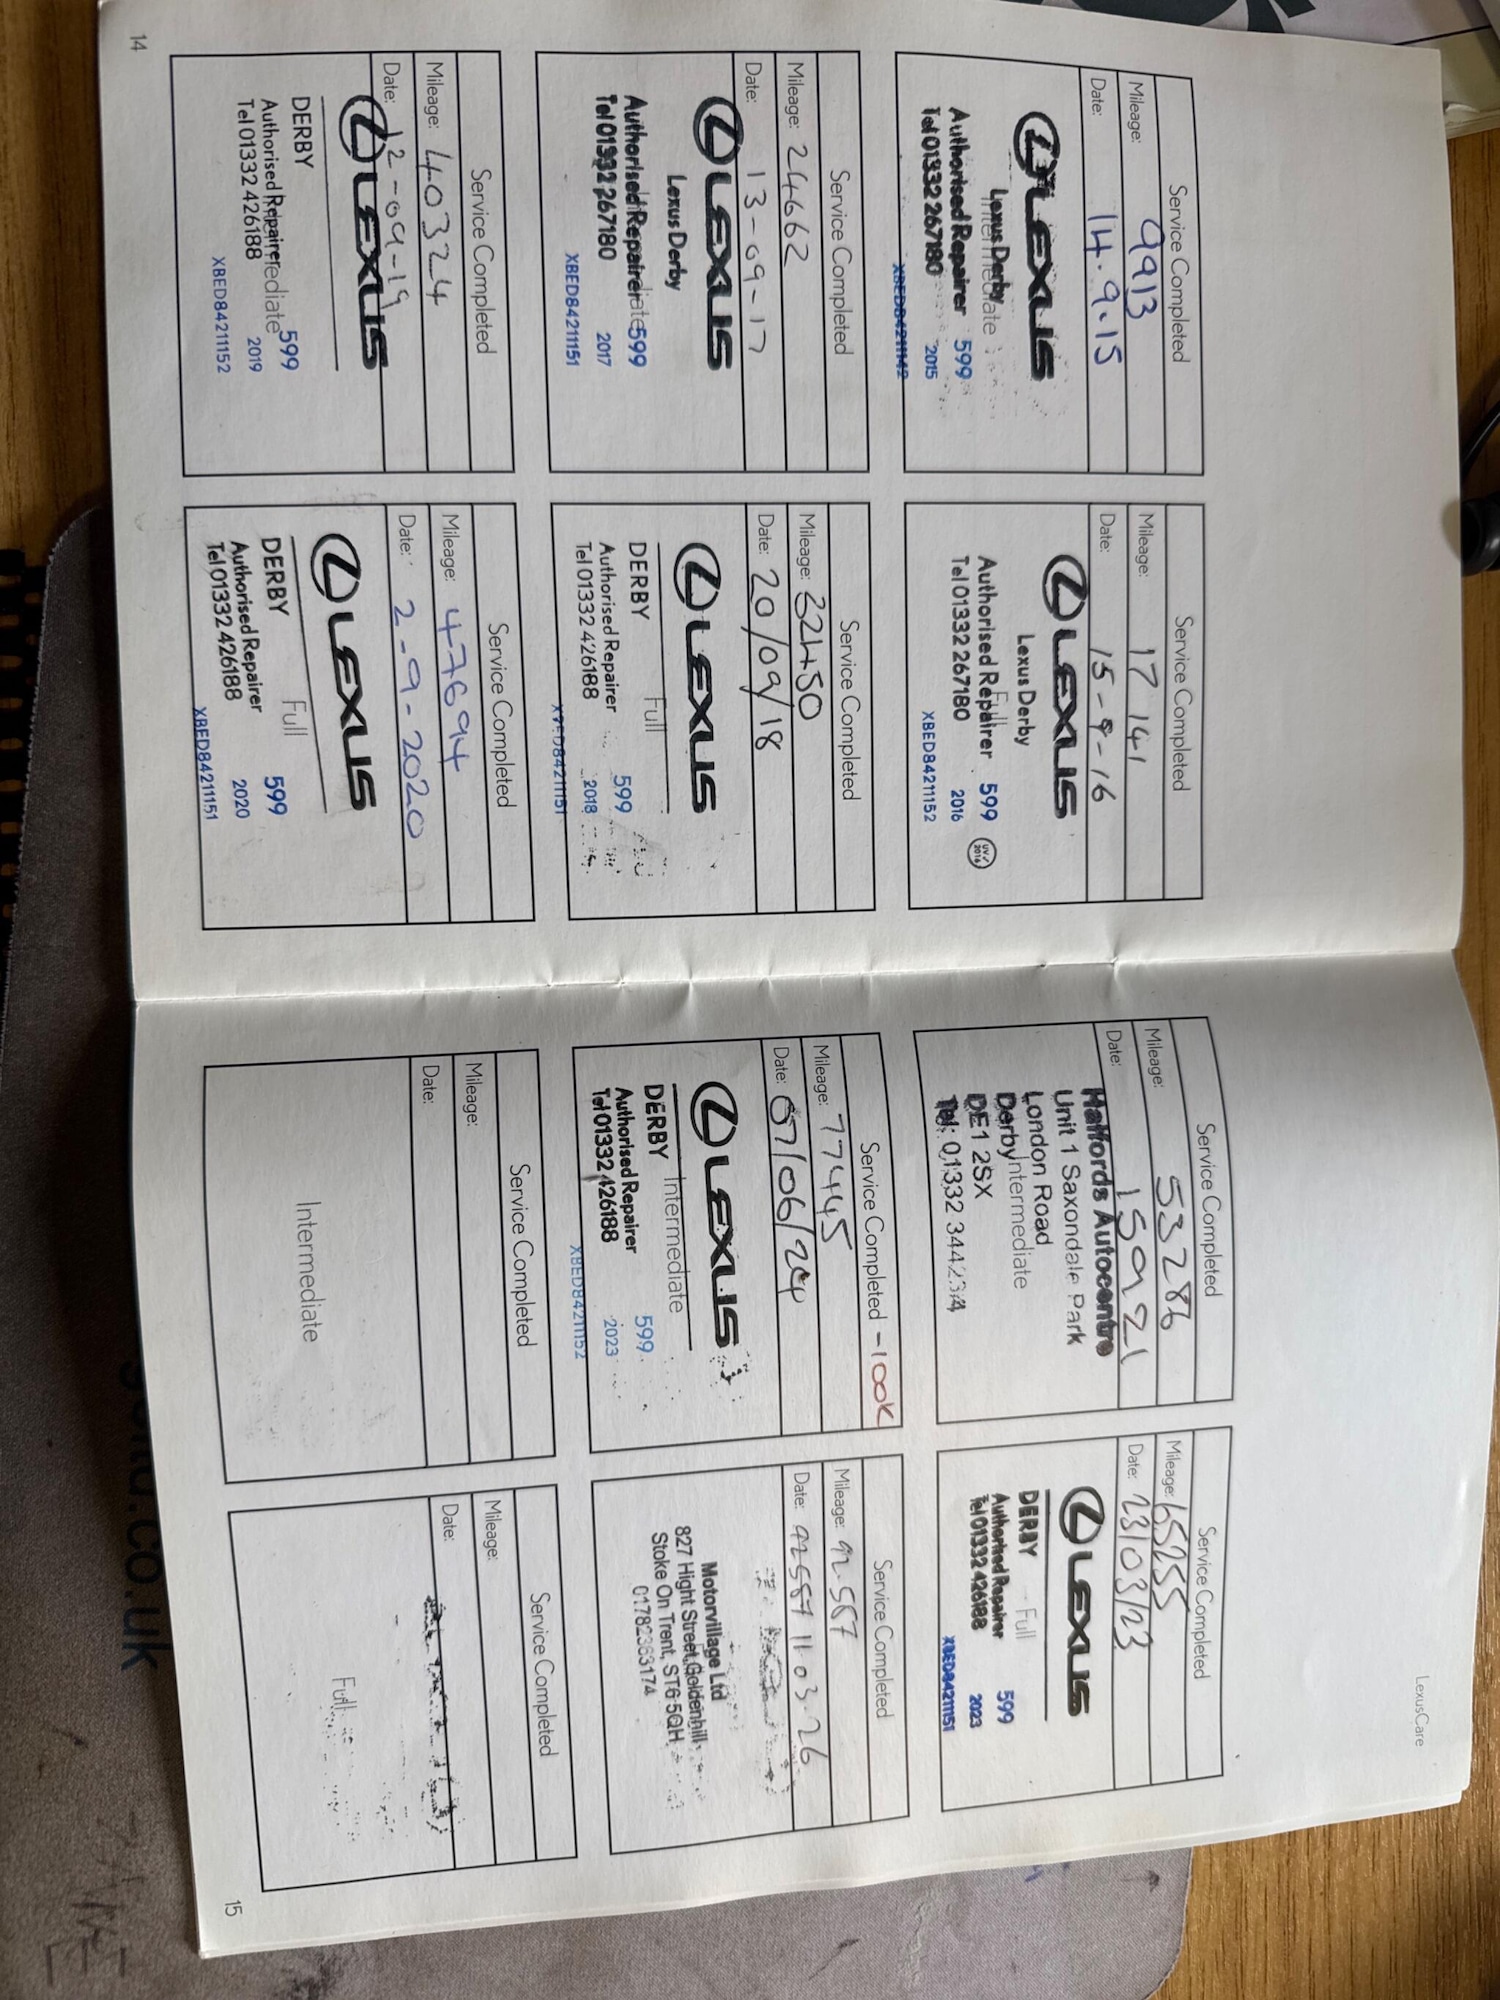 LexusCare
Service Completed
Mileage: 9913
Date: 14.9.15
LEXUS
Lexus Derby
Intermediate
Authorised Repairer 599
Tel 01332 267180 2015
XBED84211142
Service Completed
Mileage: 17141
Date: 15-9-16
LEXUS
Lexus Derby
Full
Authorised Repairer 599
UV✓ 2016
Tel 01332 267180 2016
XBED84211152
Service Completed
Mileage: 24662
Date: 13-09-17
LEXUS
Lexus Derby
Authorised Repairer 599
Tel 01332 267180 2017
XBED84211151
Service Completed
Mileage: 32450
Date: 20/09/18
LEXUS
Full
DERBY 599
Authorised Repairer
Tel 01332 426188 2018
XBED84211151
Service Completed
Mileage: 40324
Date: 12-09-19
LEXUS
DERBY 599
Authorised Repairer
Tel 01332 426188 2019
XBED84211152
Service Completed
Mileage: 47694
Date: 2-9-2020
LEXUS
Full
DERBY 599
Authorised Repairer
Tel 01332 426188 2020
XBED84211151
14
Service Completed
Mileage: 53286
Date: 15 9 21
Halfords Autocentre
Unit 1 Saxondale Park
London Road
Derby Intermediate
DE1 2SX
Tel: 01332 344234
Service Completed
Mileage: 65255
Date: 23/03/23
LEXUS
Full
DERBY 599
Authorised Repairer
Tel 01332 426188 2023
XBED84211151
Service Completed - 100K
Mileage: 77445
Date: 07/06/24
LEXUS
Intermediate
DERBY 599
Authorised Repairer
Tel 01332 426188 2023
XBED84211152
Service Completed
Mileage: 92.587
Date: 92587 11.03.26
Motorvillage Ltd
827 Hight Street, Goldenhill
Stoke On Trent, ST6 5QH
01782363174
Service Completed
Mileage:
Date:
Intermediate
Service Completed
Mileage:
Date:
Full
15
.co.uk